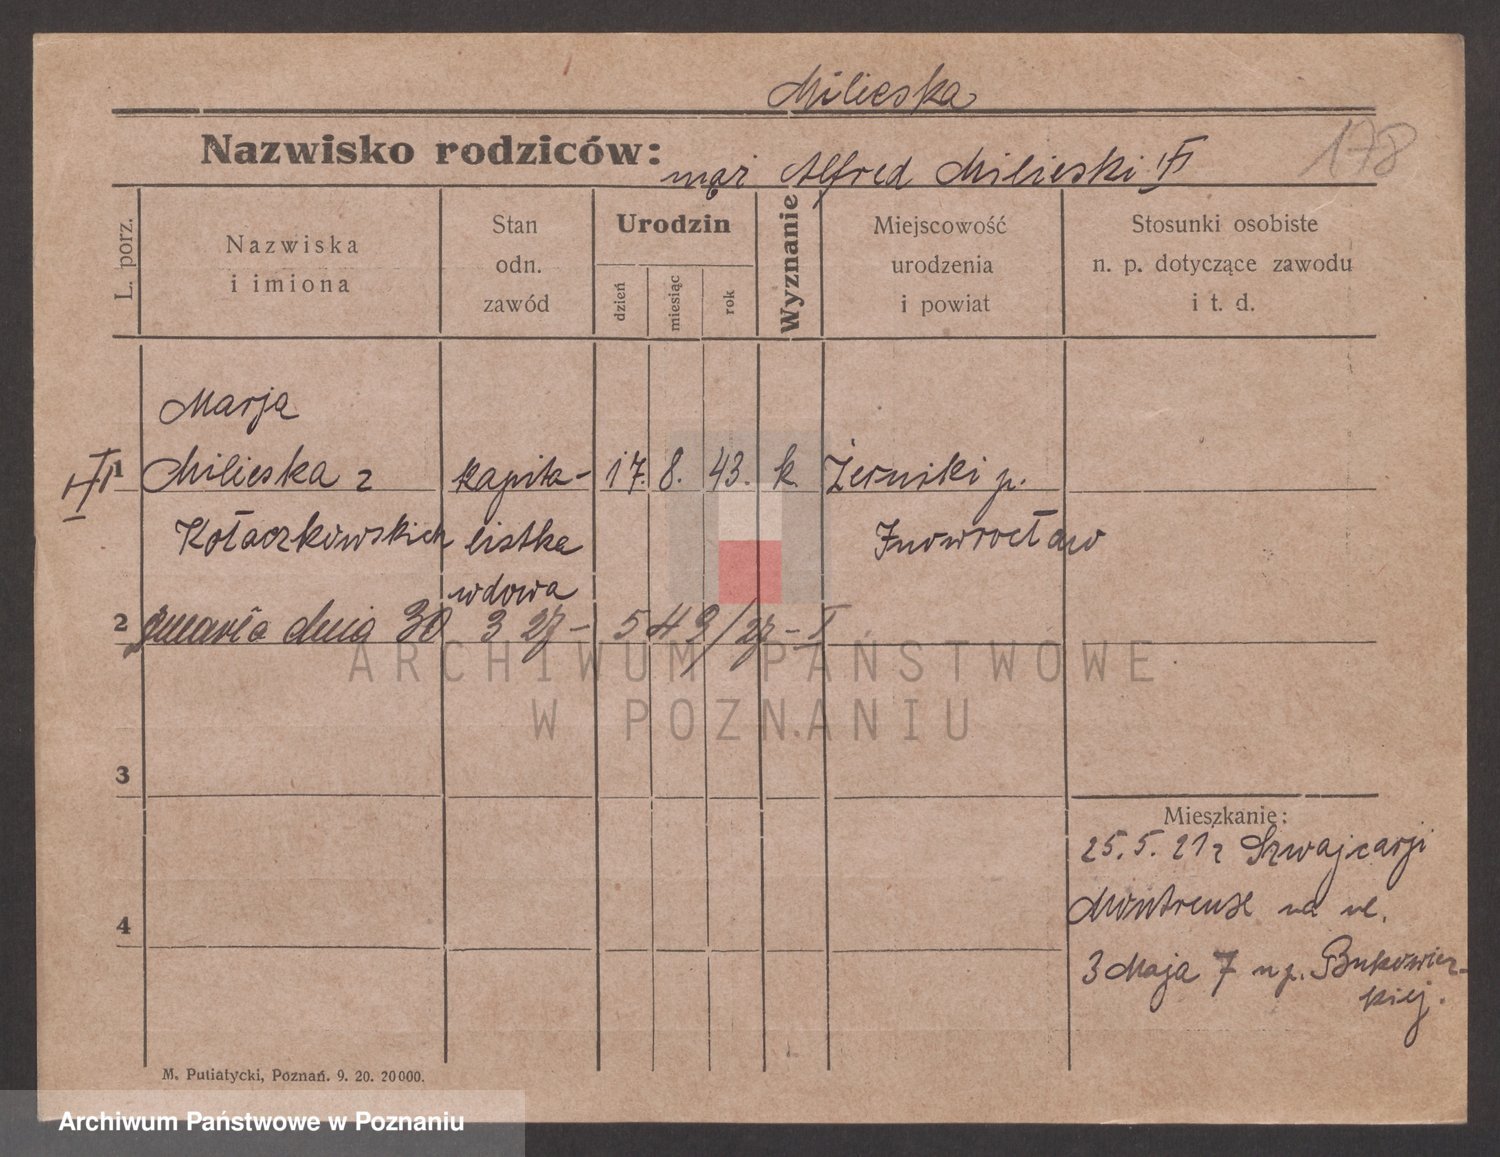 Milieska
178
Nazwisko rodziców: mąż Alfred Milieski
L. porz.
Nazwiska
i imiona
Stan
odn.
zawód
Urodzin
dzień
miesiąc
rok
Wyznanie
Miejscowość
urodzenia
i powiat
Stosunki osobiste
n. p. dotyczące zawodu
i t. d.
Marja
1 Milieska z kapita- 17. 8. 43. k Żerniki p.
Kołaczkowskich listka Inowrocław
wdowa
2 zmarła dnia 30 3 27 - 549/27 - I
ARCHIWUM PAŃSTWOWE
W POZNANIU
3
Mieszkanie:
25. 5. 21 z Szwajcarji
Montreux na ul.
4
3 Maja 7 u p. Bukowiec-
kiej.
M. Putiatycki, Poznań. 9. 20. 20000.
Archiwum Państwowe w Poznaniu